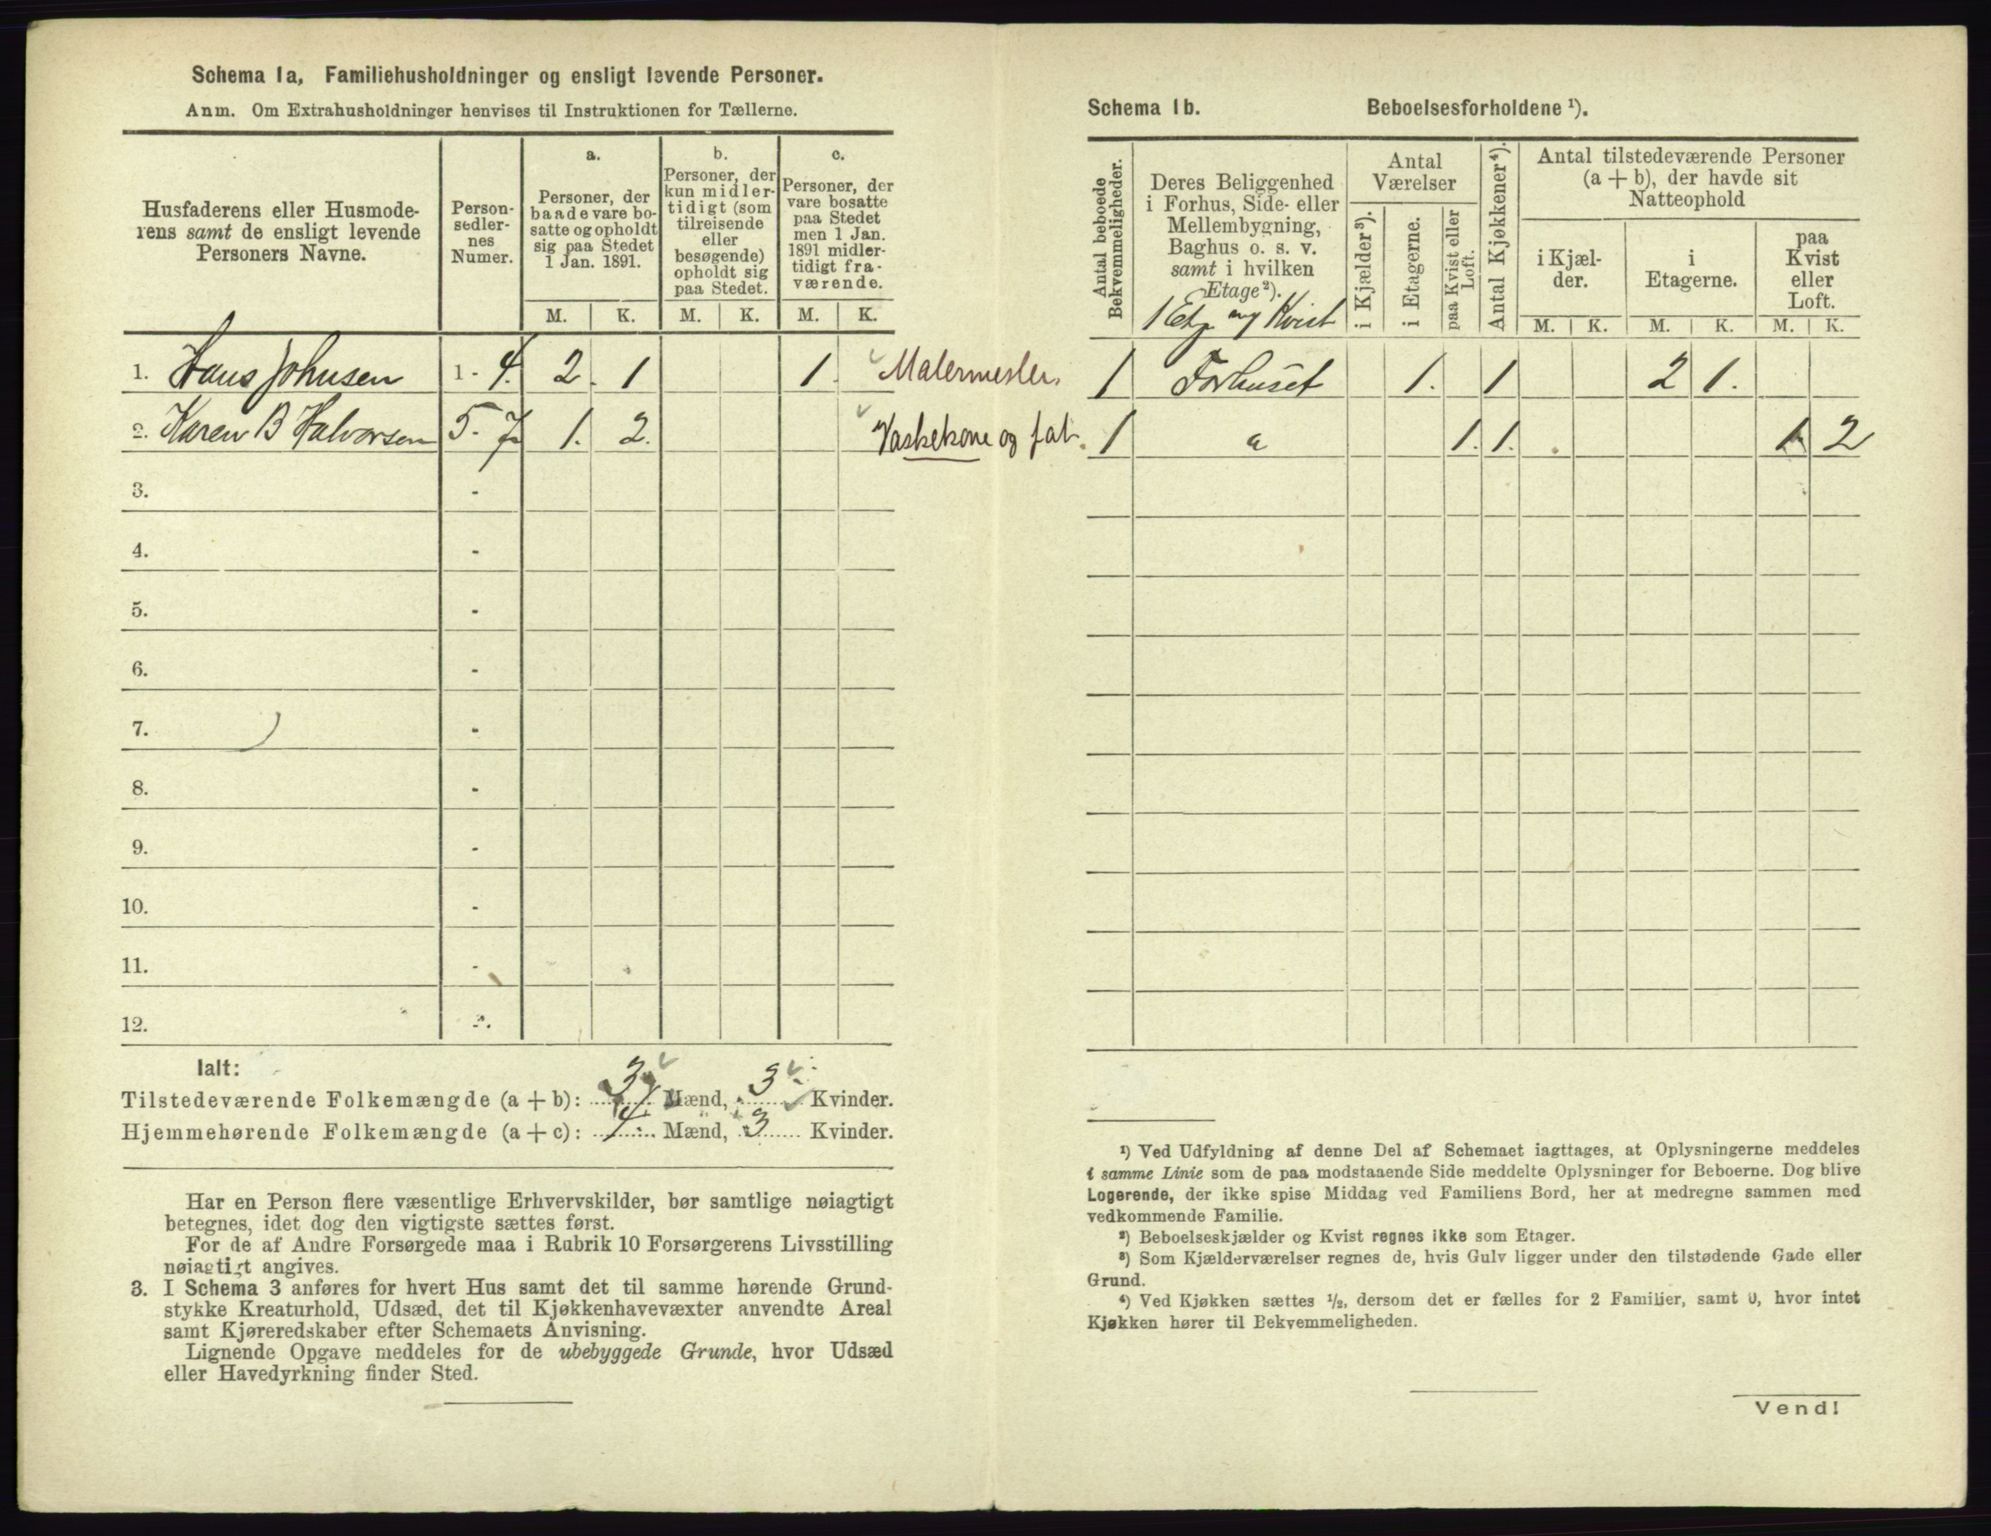 Schema 1a, Familiehusholdninger og ensligt levende Personer.
Anm. Om Extrahusholdninger henvises til Instruktionen for Tællerne.
Husfaderens eller Husmoderens samt de ensligt levende Personers Navne.
Personsedlernes Numer.
a.
Personer, der baade vare bosatte og opholdt sig paa Stedet 1 Jan. 1891.
b.
Personer, der kun midlertidigt (som tilreisende eller besøgende) opholdt sig paa Stedet.
c.
Personer, der vare bosatte paa Stedet men 1 Jan. 1891 midlertidigt fraværende.
M. K. M. K. M. K.
1. Hans Johnsen 1 - 4. 2. 1 1. Malermester
2. Karen B Halvorsen 5 - 7 1. 2. Vaskekone og fat.
3. -
4. -
5. -
6. -
7. -
8. -
9. -
10. -
11. -
12. -
Ialt:
Tilstedeværende Folkemængde (a + b): 3 Mænd, 3 Kvinder.
Hjemmehørende Folkemængde (a + c): 4 Mænd, 3 Kvinder.
Har en Person flere væsentlige Erhvervskilder, bør samtlige nøiagtigt
betegnes, idet dog den vigtigste sættes først.
For de af Andre Forsørgede maa i Rubrik 10 Forsørgerens Livsstilling
nøiagtigt angives.
3. I Schema 3 anføres for hvert Hus samt det til samme hørende Grund-
stykke Kreaturhold, Udsæd, det til Kjøkkenhavevæxter anvendte Areal
samt Kjøreredskaber efter Schemaets Anvisning.
Lignende Opgave meddeles for de ubebyggede Grunde, hvor Udsæd
eller Havedyrkning finder Sted.
Schema 1b. Beboelsesforholdene ¹).
Antal beboede Bekvemmeligheder.
Deres Beliggenhed i Forhus, Side- eller Mellembygning, Baghus o. s. v. samt i hvilken Etage ²).
1 Etg og Kvist
Antal Værelser
i Kjælder ³).
i Etagerne.
paa Kvist eller Loft.
Antal Kjøkkener ⁴).
Antal tilstedeværende Personer (a + b), der havde sit Natteophold
i Kjælder.
i Etagerne.
paa Kvist eller Loft.
M. K. M. K. M. K.
1 Forhuset 1. 1 2 1.
1 " 1. 1. 1 2
¹) Ved Udfyldning af denne Del af Schemaet iagttages, at Oplysningerne meddeles
i samme Linie som de paa modstaaende Side meddelte Oplysninger for Beboerne. Dog blive
Logerende, der ikke spise Middag ved Familiens Bord, her at medregne sammen med
vedkommende Familie.
²) Beboelseskjælder og Kvist regnes ikke som Etager.
³) Som Kjælderværelser regnes de, hvis Gulv ligger under den tilstødende Gade eller
Grund.
⁴) Ved Kjøkken sættes ½, dersom det er fælles for 2 Familier, samt 0, hvor intet
Kjøkken hører til Bekvemmeligheden.
Vend!